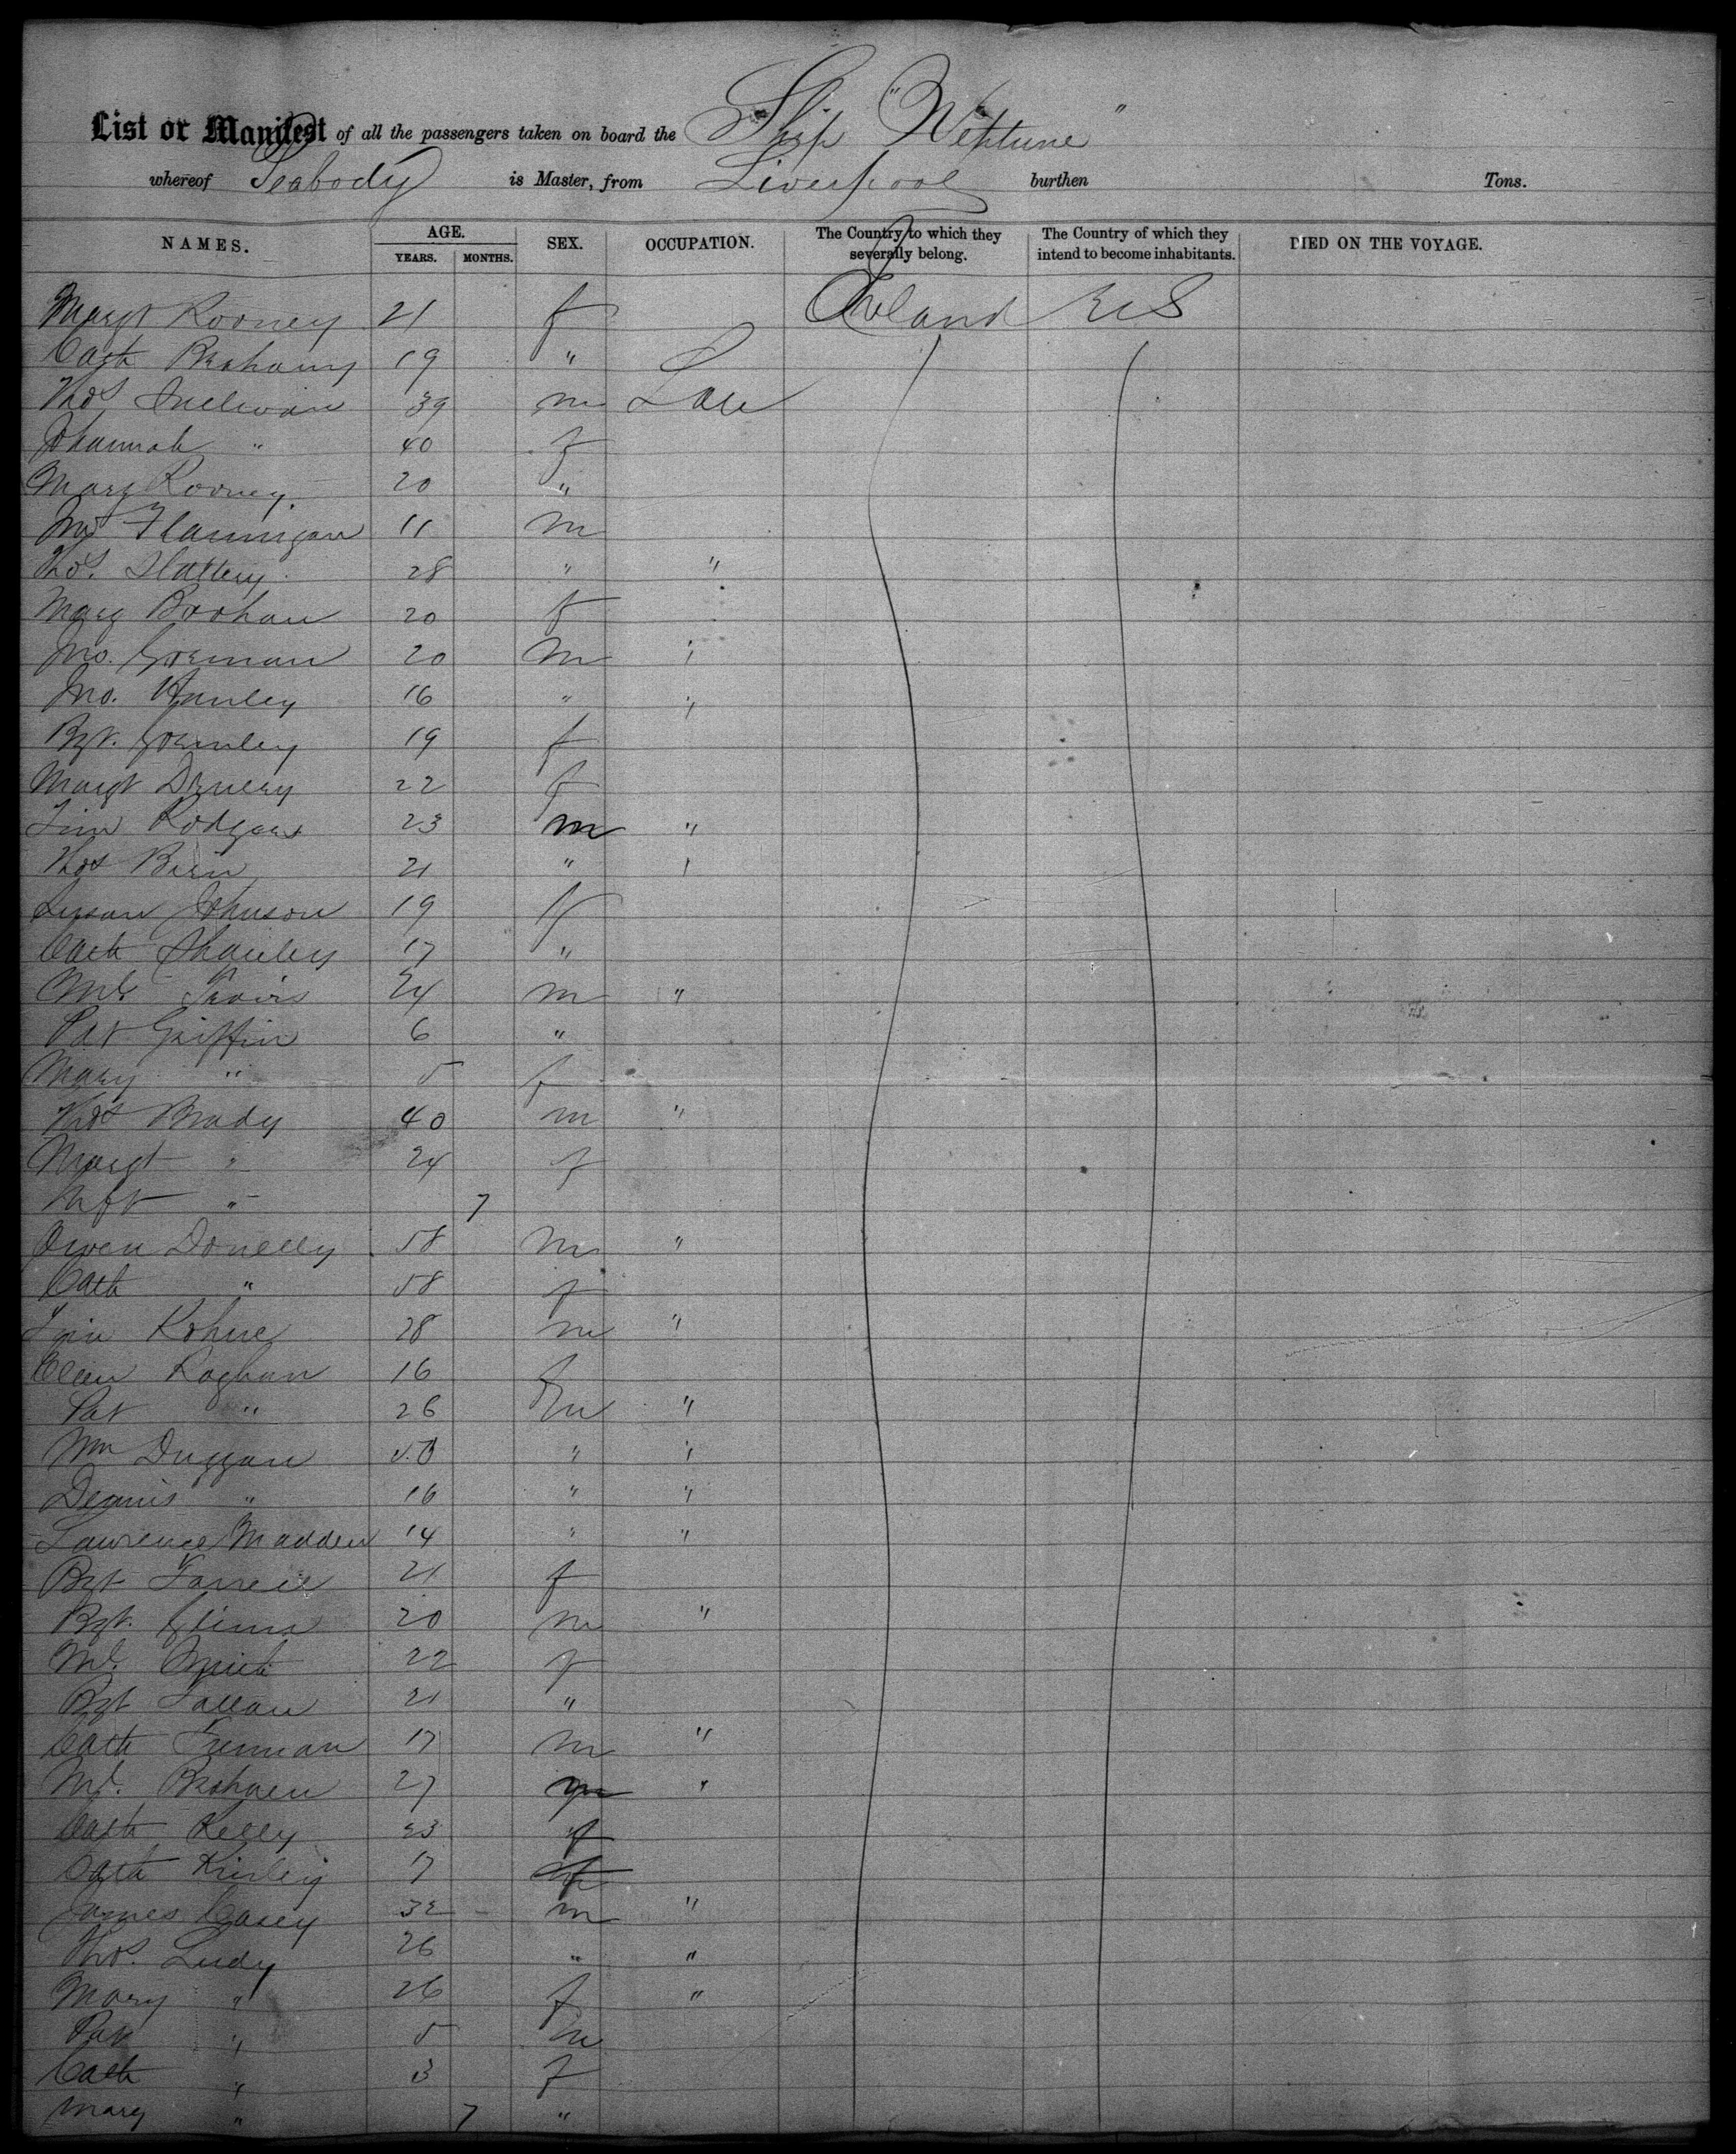 List or Manifest of all the passengers taken on board the Ship "Neptune"
whereof Peabody is Master, from Liverpool burthen Tons.
NAMES. AGE. YEARS. MONTHS. SEX. OCCUPATION. The Country to which they severally belong. The Country of which they intend to become inhabitants. DIED ON THE VOYAGE.
Margt Rooney 21 f Ireland U S
Cath 19 "
Thos Sullivan 39 m Lab
Johannah " 40 f
Mary Rooney 20 "
Jno Flannigan 11 m
Thos. Slattery 28 " "
Mary Brohan 20 f
Jno. Gorman 20 m "
Jno. Hanley 16 " "
Bgt. Gormley 19 f
Margt 22 f
Tim Rodgers 23 m "
Thos Birn 21 " "
Susan Johnson 19 f
Cath Shanley 17 "
Ml. Travis 24 m "
Pat Griffin 6 "
Mary " 5 f
Thos Brady 40 m "
Margt " 24 f
Inft " 7
Owen Donelly 58 m "
Cath " 58 f
Tim Kohne 28 m "
Ellen Roghan 16 f
Pat " 26 m "
Wm Duggan 50 " "
Dennis " 16 " "
Lawrence Madden 14 " "
Bgt Farrell 21 f
Bgt. Glinn 20 m "
Ml. Smith 22 f
Bgt Fallan 21 "
Cath Freeman 17 m "
Ml. Brohaen 27 m "
Cath Kelly 23 f
Cath Kinley 17 f
James Casey 32 m "
Thos. Ludy 26 " "
Mary " 26 f "
Pat " 5 m
Cath " 3 f
Mary " 7 "